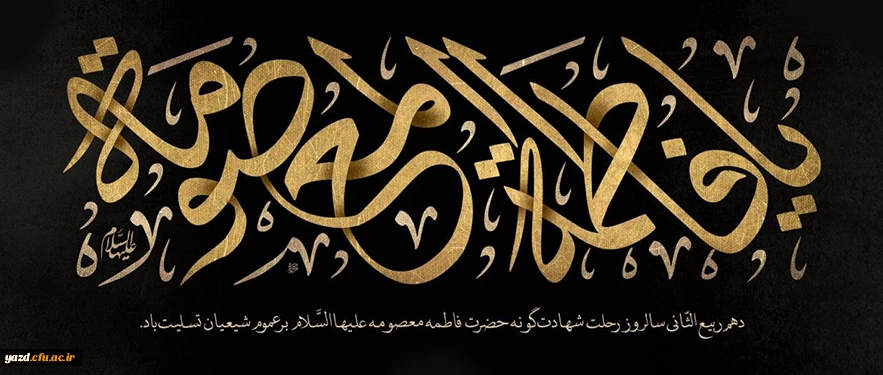 یا فاطمة المعصومة
علیها السلام
دهم ربیع الثّانی سالروز رحلت شهادت‌گونه حضرت فاطمه معصومه علیها السَّلام بر عموم شیعیان تسلیت باد.
yazd.cfu.ac.ir